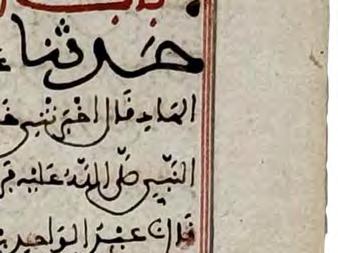 حدثنا
الهاد قال اخبرتني
النبي صلى الله عليه
قال عبد الواحد